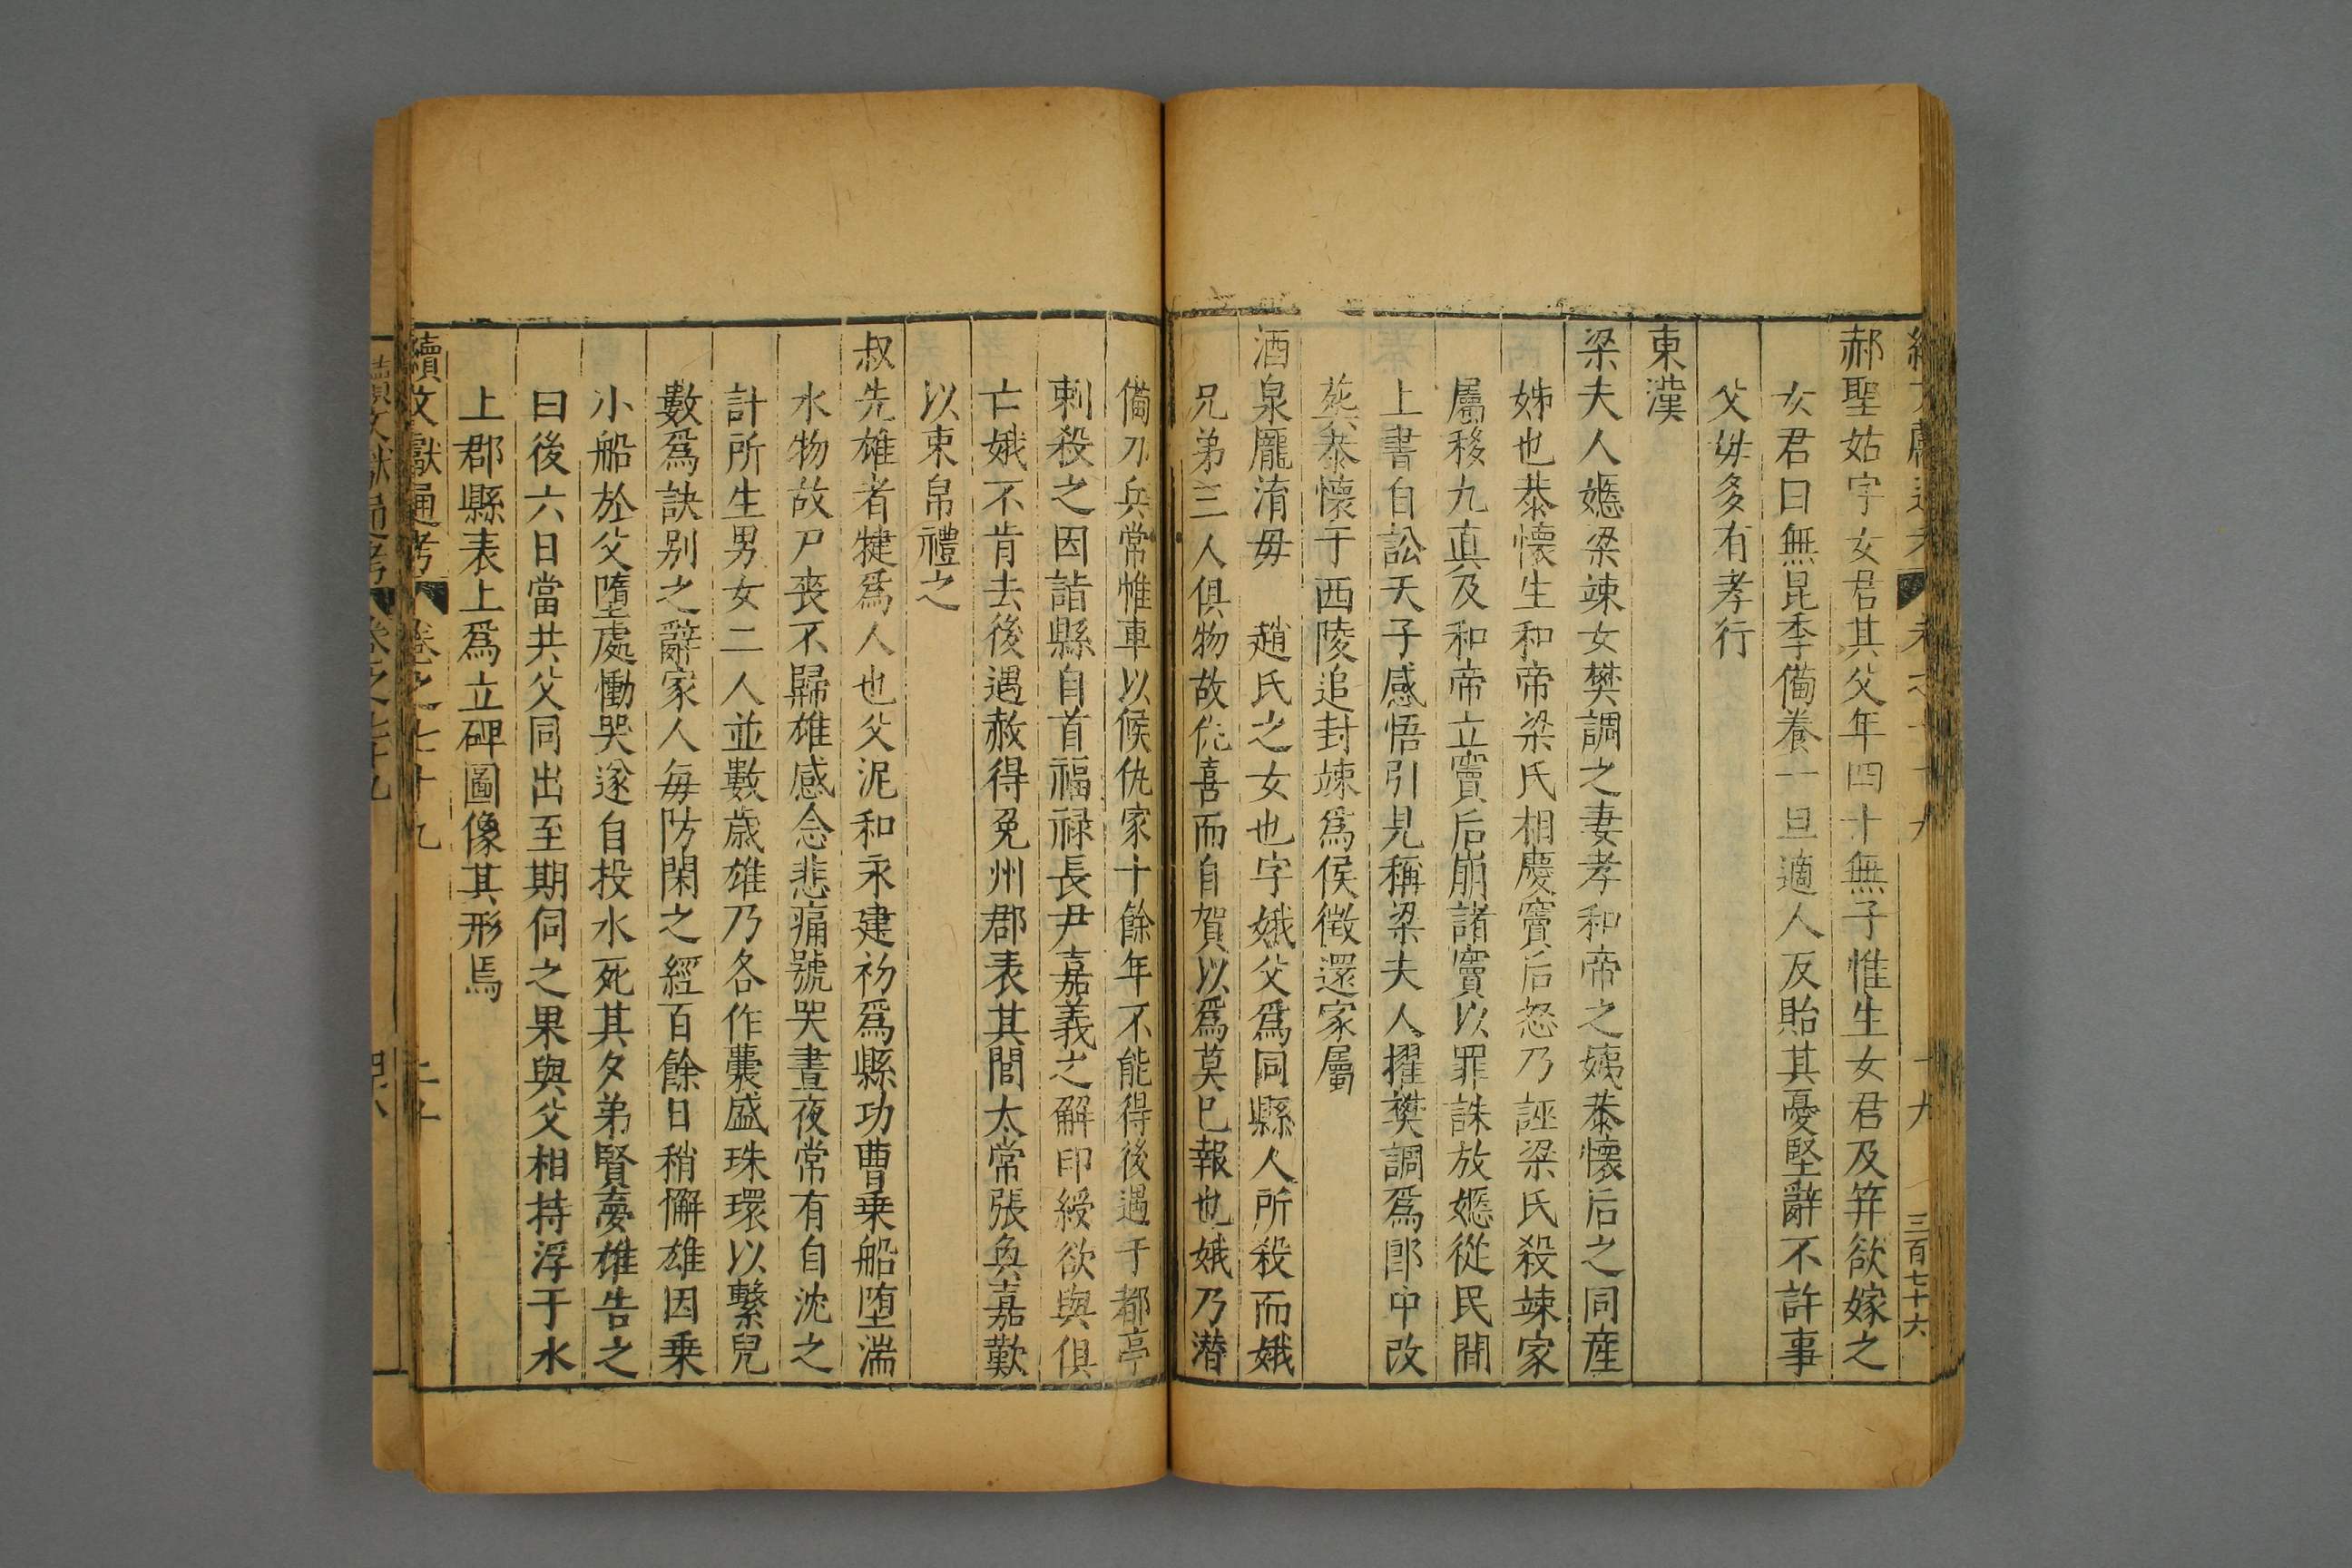 郝聖姑字女君其父年四十無子惟生女君及笄欲嫁之
女君曰無昆季備養一旦適人反貽其憂堅辭不許事
父母多有孝行
東漢
梁夫人嫕梁竦女樊調之妻孝和帝之姨恭懷后之同產
姊也恭懷生和帝梁氏相慶竇后怒乃誣梁氏殺竦家
屬移九真及和帝立竇后崩諸竇以罪誅放嫕從民間
上書自訟天子感悟引見稱梁夫人擢樊調爲郎中改
葬恭懷于西陵追封竦爲侯徵還家屬
酒泉龐淯毋 趙氏之女也字娥父爲同縣人所殺而娥
兄弟三人俱物故仇喜而自賀以爲莫已報也娥乃潛
備刀兵常帷車以候仇家十餘年不能得後遇于都亭
刺殺之因詣縣自首福禄長尹嘉義之解印綬欲與俱
亡娥不肯去後遇赦得免州郡表其閭太常張奐嘉歎
以束帛禮之
叔先雄者犍爲人也父泥和永建初爲縣功曹乗船堕湍
水物故尸喪不歸雄感念悲痛號哭晝夜常有自沈之
計所生男女二人並數歲雄乃各作囊盛珠環以繫兒
數爲訣别之辭家人每防閑之經百餘日稍懈雄因乗
小船於父墮處慟哭遂自投水死其夕弟賢夢雄告之
曰後六日當共父同出至期伺之果與父相持浮于水
上郡縣表上爲立碑圖像其形焉
續文獻通考 卷之七十九 二十